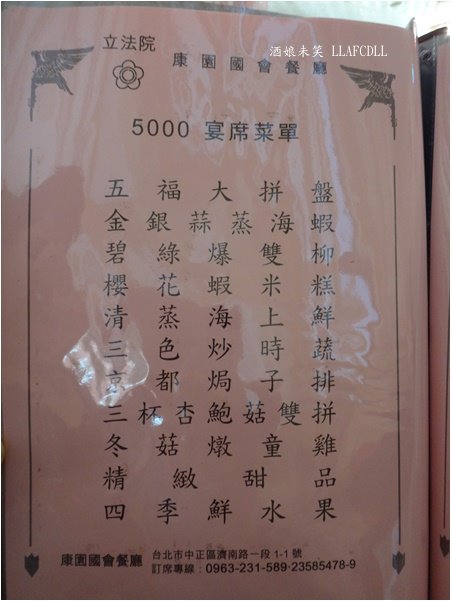 酒娘未笑 LLAFCDLL
立法院
康園國會餐廳
5000 宴席菜單
五福大拼盤
金銀蒜蒸海蝦
碧綠爆雙柳
櫻花蝦米糕
清蒸海上鮮
三色炒時蔬
京都焗子排
三杯杏鮑菇雙拼
冬菇燉童雞
精緻甜品
四季鮮水果
康園國會餐廳 台北市中正區濟南路一段1-1號
訂席專線：0963-231-589·23585478-9